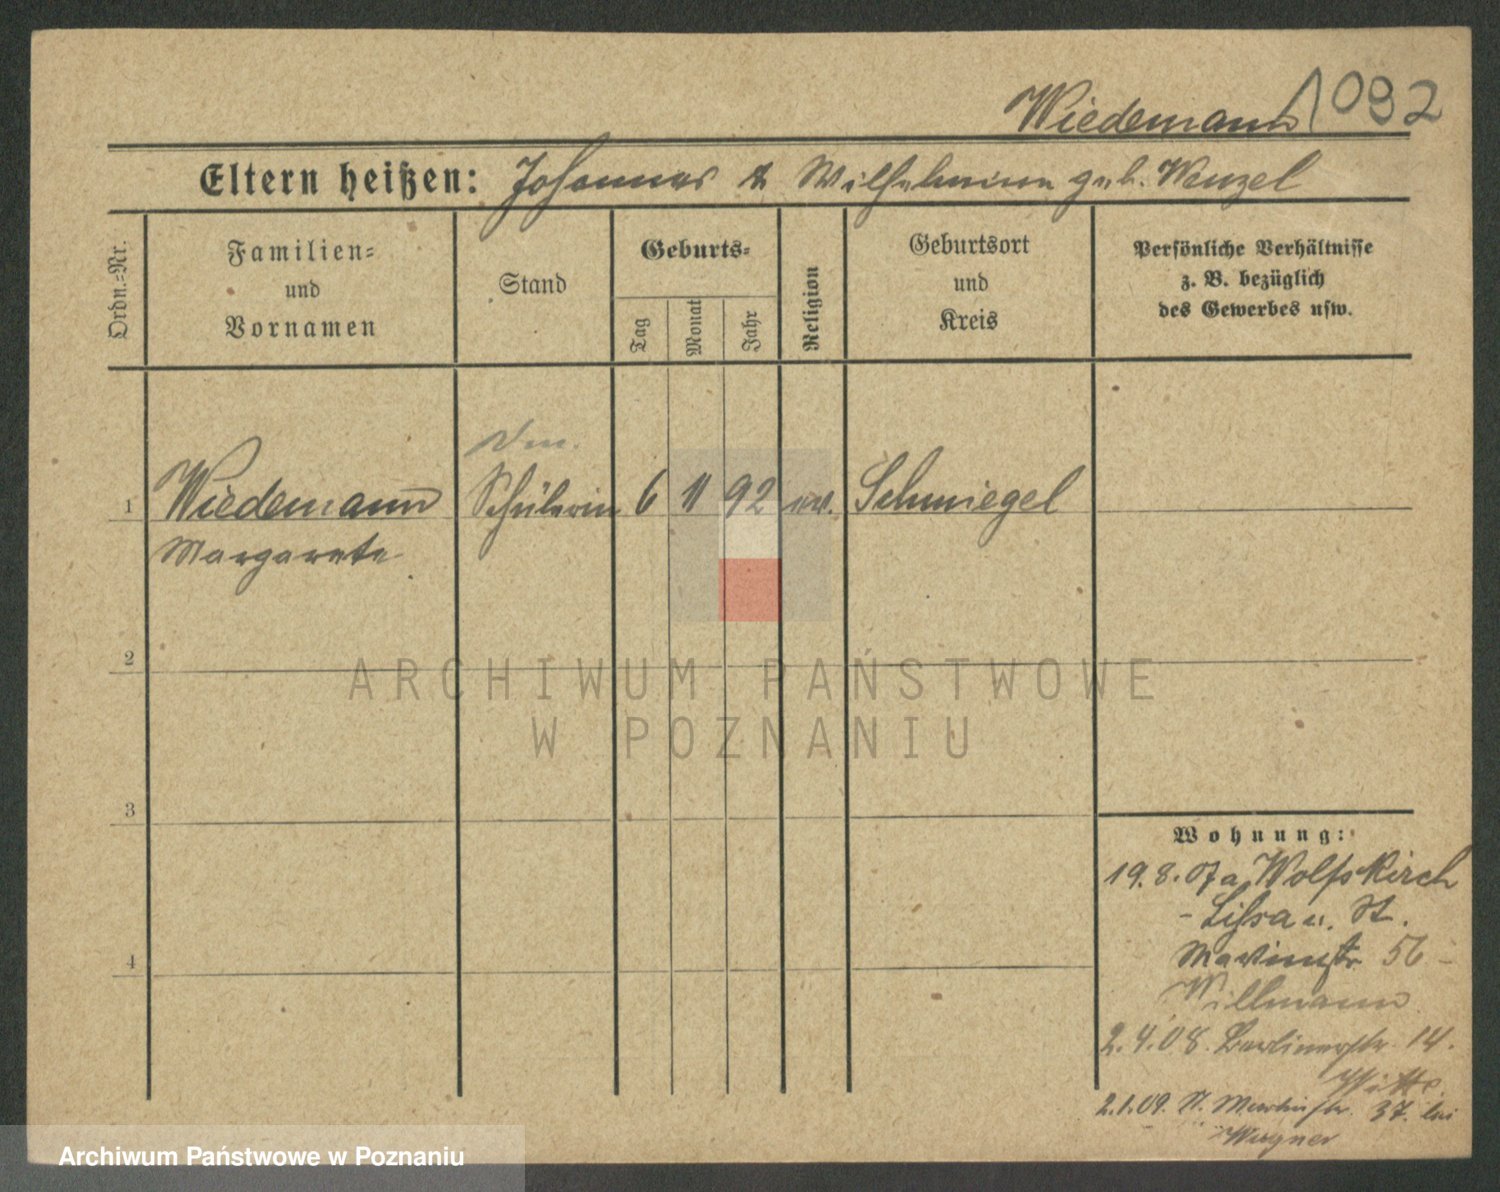 Wiedemann 1092
Eltern heißen: Johannes & Wilhelmine geb. Wenzel
Ordn.-Nr.
Familien-
und
Vornamen
Stand
Geburts-
Tag
Monat
Jahr
Religion
Geburtsort
und
Kreis
Persönliche Verhältnisse
z. B. bezüglich
des Gewerbes usw.
1 Wiedemann Schülerin 6 11 92 ev. Schmiegel
Margarete
2
3
4
Wohnung:
19.8.07 a Wolfskirch
- Lissa u. St.
Martinstr 56 -
Willmann
2.4.08. Berlinerstr. 14.
Witte.
2.1.09. St. Martinstr. 37. bei
Wagner
ARCHIWUM PAŃSTWOWE
W POZNANIU
Archiwum Państwowe w Poznaniu